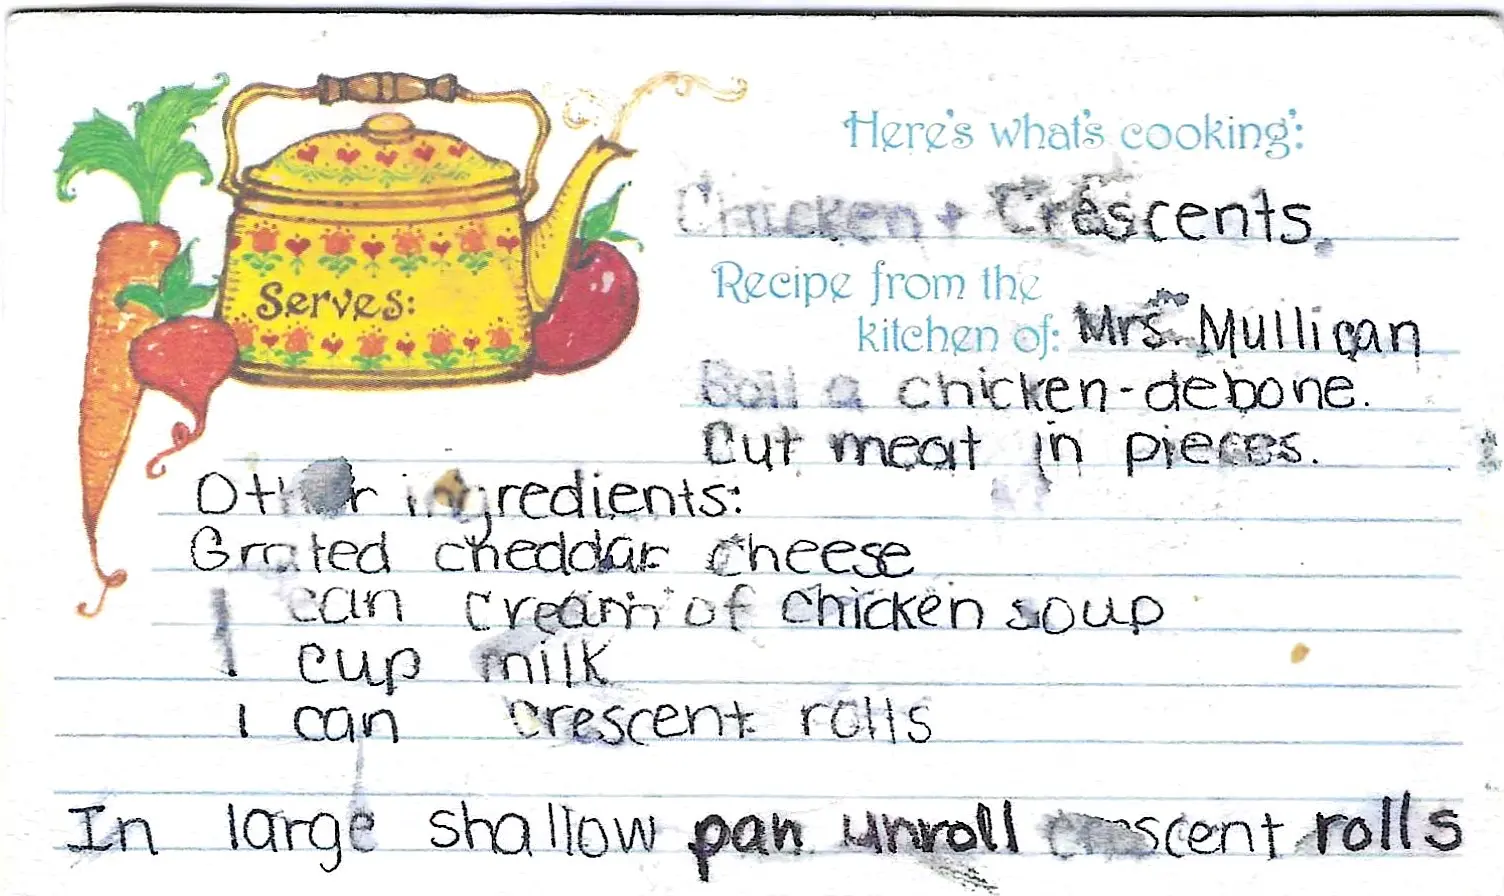 Here's what's cooking:
Chicken + Crescents.
Serves:
Recipe from the
kitchen of: Mrs. Mulligan
Boil a chicken-debone.
Cut meat in pieces.
Other ingredients:
Grated cheddar cheese
1 can cream of chicken soup
1 cup milk
1 can crescent rolls
In large shallow pan unroll crescent rolls